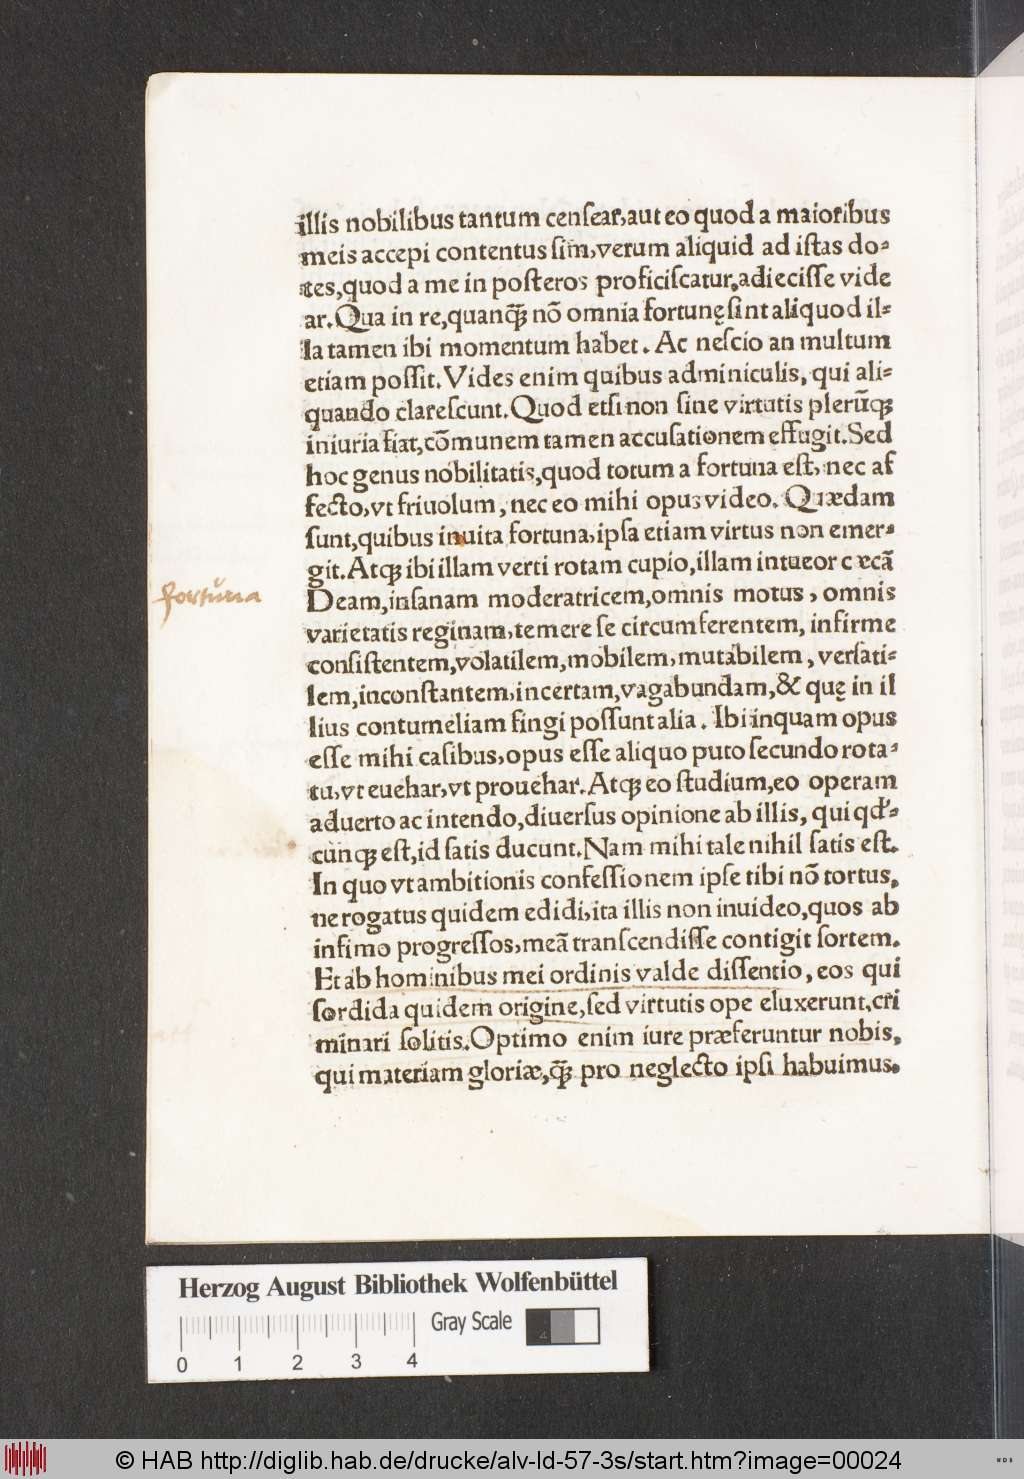 illis nobilibus tantum censear, aut eo quod a maioribus
meis accepi contentus sim, verum aliquid ad istas do-
tes, quod a me in posteros proficiscatur, adiecisse vide
ar. Qua in re, quanꝙ̃ nō omnia fortunę sint aliquod il-
la tamen ibi momentum habet. Ac nescio an multum
etiam possit. Vides enim quibus adminiculis, qui ali-
quando clarescunt. Quod etsi non sine virtutis plerūqꝫ
iniuria fiat, cōmunem tamen accusationem effugit. Sed
hoc genus nobilitatis, quod totum a fortuna est, nec af
fecto, vt friuolum, nec eo mihi opus video. Quædam
sunt, quibus inuita fortuna, ipsa etiam virtus non emer-
git. Atqꝫ ibi illam verti rotam cupio, illam intueor cæcã
Deam, insanam moderatricem, omnis motus, omnis
varietatis reginam, temere se circumferentem, infirme
consistentem, volatilem, mobilem, mutabilem, versati-
lem, inconstantem, incertam, vagabundam, & quę in il
lius contumeliam fingi possunt alia. Ibi inquam opus
esse mihi casibus, opus esse aliquo puto secundo rota-
tu, vt euehar, vt prouehar. Atqꝫ eo studium, eo operam
aduerto ac intendo, diuersus opinione ab illis, qui qd'-
cunqꝫ est, id satis ducunt. Nam mihi tale nihil satis est.
In quo vt ambitionis confessionem ipse tibi nō tortus,
ne rogatus quidem edidi, ita illis non inuideo, quos ab
infimo progressos, meã transcendisse contigit sortem.
Et ab hominibus mei ordinis valde dissentio, eos qui
sordida quidem origine, sed virtutis ope eluxerunt, cri
minari solitis. Optimo enim iure præferuntur nobis,
qui materiam gloriæ, ꝙ̃ pro neglecto ipsi habuimus.
fortuna
Herzog August Bibliothek Wolfenbüttel
0 1 2 3 4
Gray Scale
4
© HAB http://diglib.hab.de/drucke/alv-ld-57-3s/start.htm?image=00024